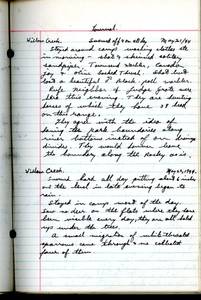 Journal
Willow Creek. Snowed off & on all day May 21/44
Stayed around camp washing clothes etc
in morning - shot & skinned solitary
sandpiper, Townsend warbler, Canada
jay & Olive backed Thrush. Shot but
lost a beautiful ♂ black poll warbler.
Rufe Neighbor & Judge Groat were
here this evening. They are hunting
horses of which they have 20 head
on this range.
They agree with the idea of
having the park boundaries along
river bottoms instead of along
divide. They would
the boundary along the Rocky as is.
Willow Creek. May 22, 1944.
Snowed hard all day putting about 6 inches
on the level in late evening began to
rain.
Stayed in camp most of the day.
Saw no deer on the flats where they have
been visible every day, they are all holed
up under the trees.
A small migration of white throated
sparrows came through & we collected
four of them.